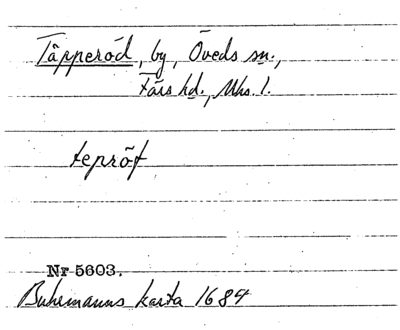 Täpperöd, by, Öveds sn.,
Färs hd., Mhs. l.
tepröf
Nr 5603.
Buhrmanns karta 1684